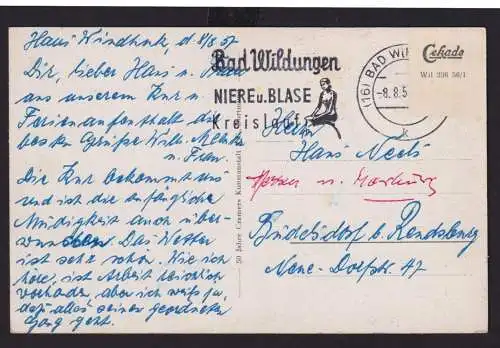 Haus Windhuk, d. 8/8.57
Dir, lieber Hans u. Frau
aus unserem Kur u.
Ferienaufenthalt die
besten Grüße Willi
u. Frau.
Die Kur bekommt uns
und ist die anfängliche
Müdigkeit auch über-
wunden. Das Wetter
ist sehr schön. Wie ich
höre, ist Arbeit reichlich
vorhanden, aber ich weiß ja,
daß alles seinen geordneten
Gang geht.
Bad Wildungen
NIERE u. BLASE
Kreislauf
(16) BAD WIL
-8.8.5
k
Cekade
Wil 236 56/1
50 Jahre Cramers Kunstanstalt
Herrn
Hans
Hessen u. Marburg
Büdelsdorf b. Rendsburg
Neue-Dorfstr. 47